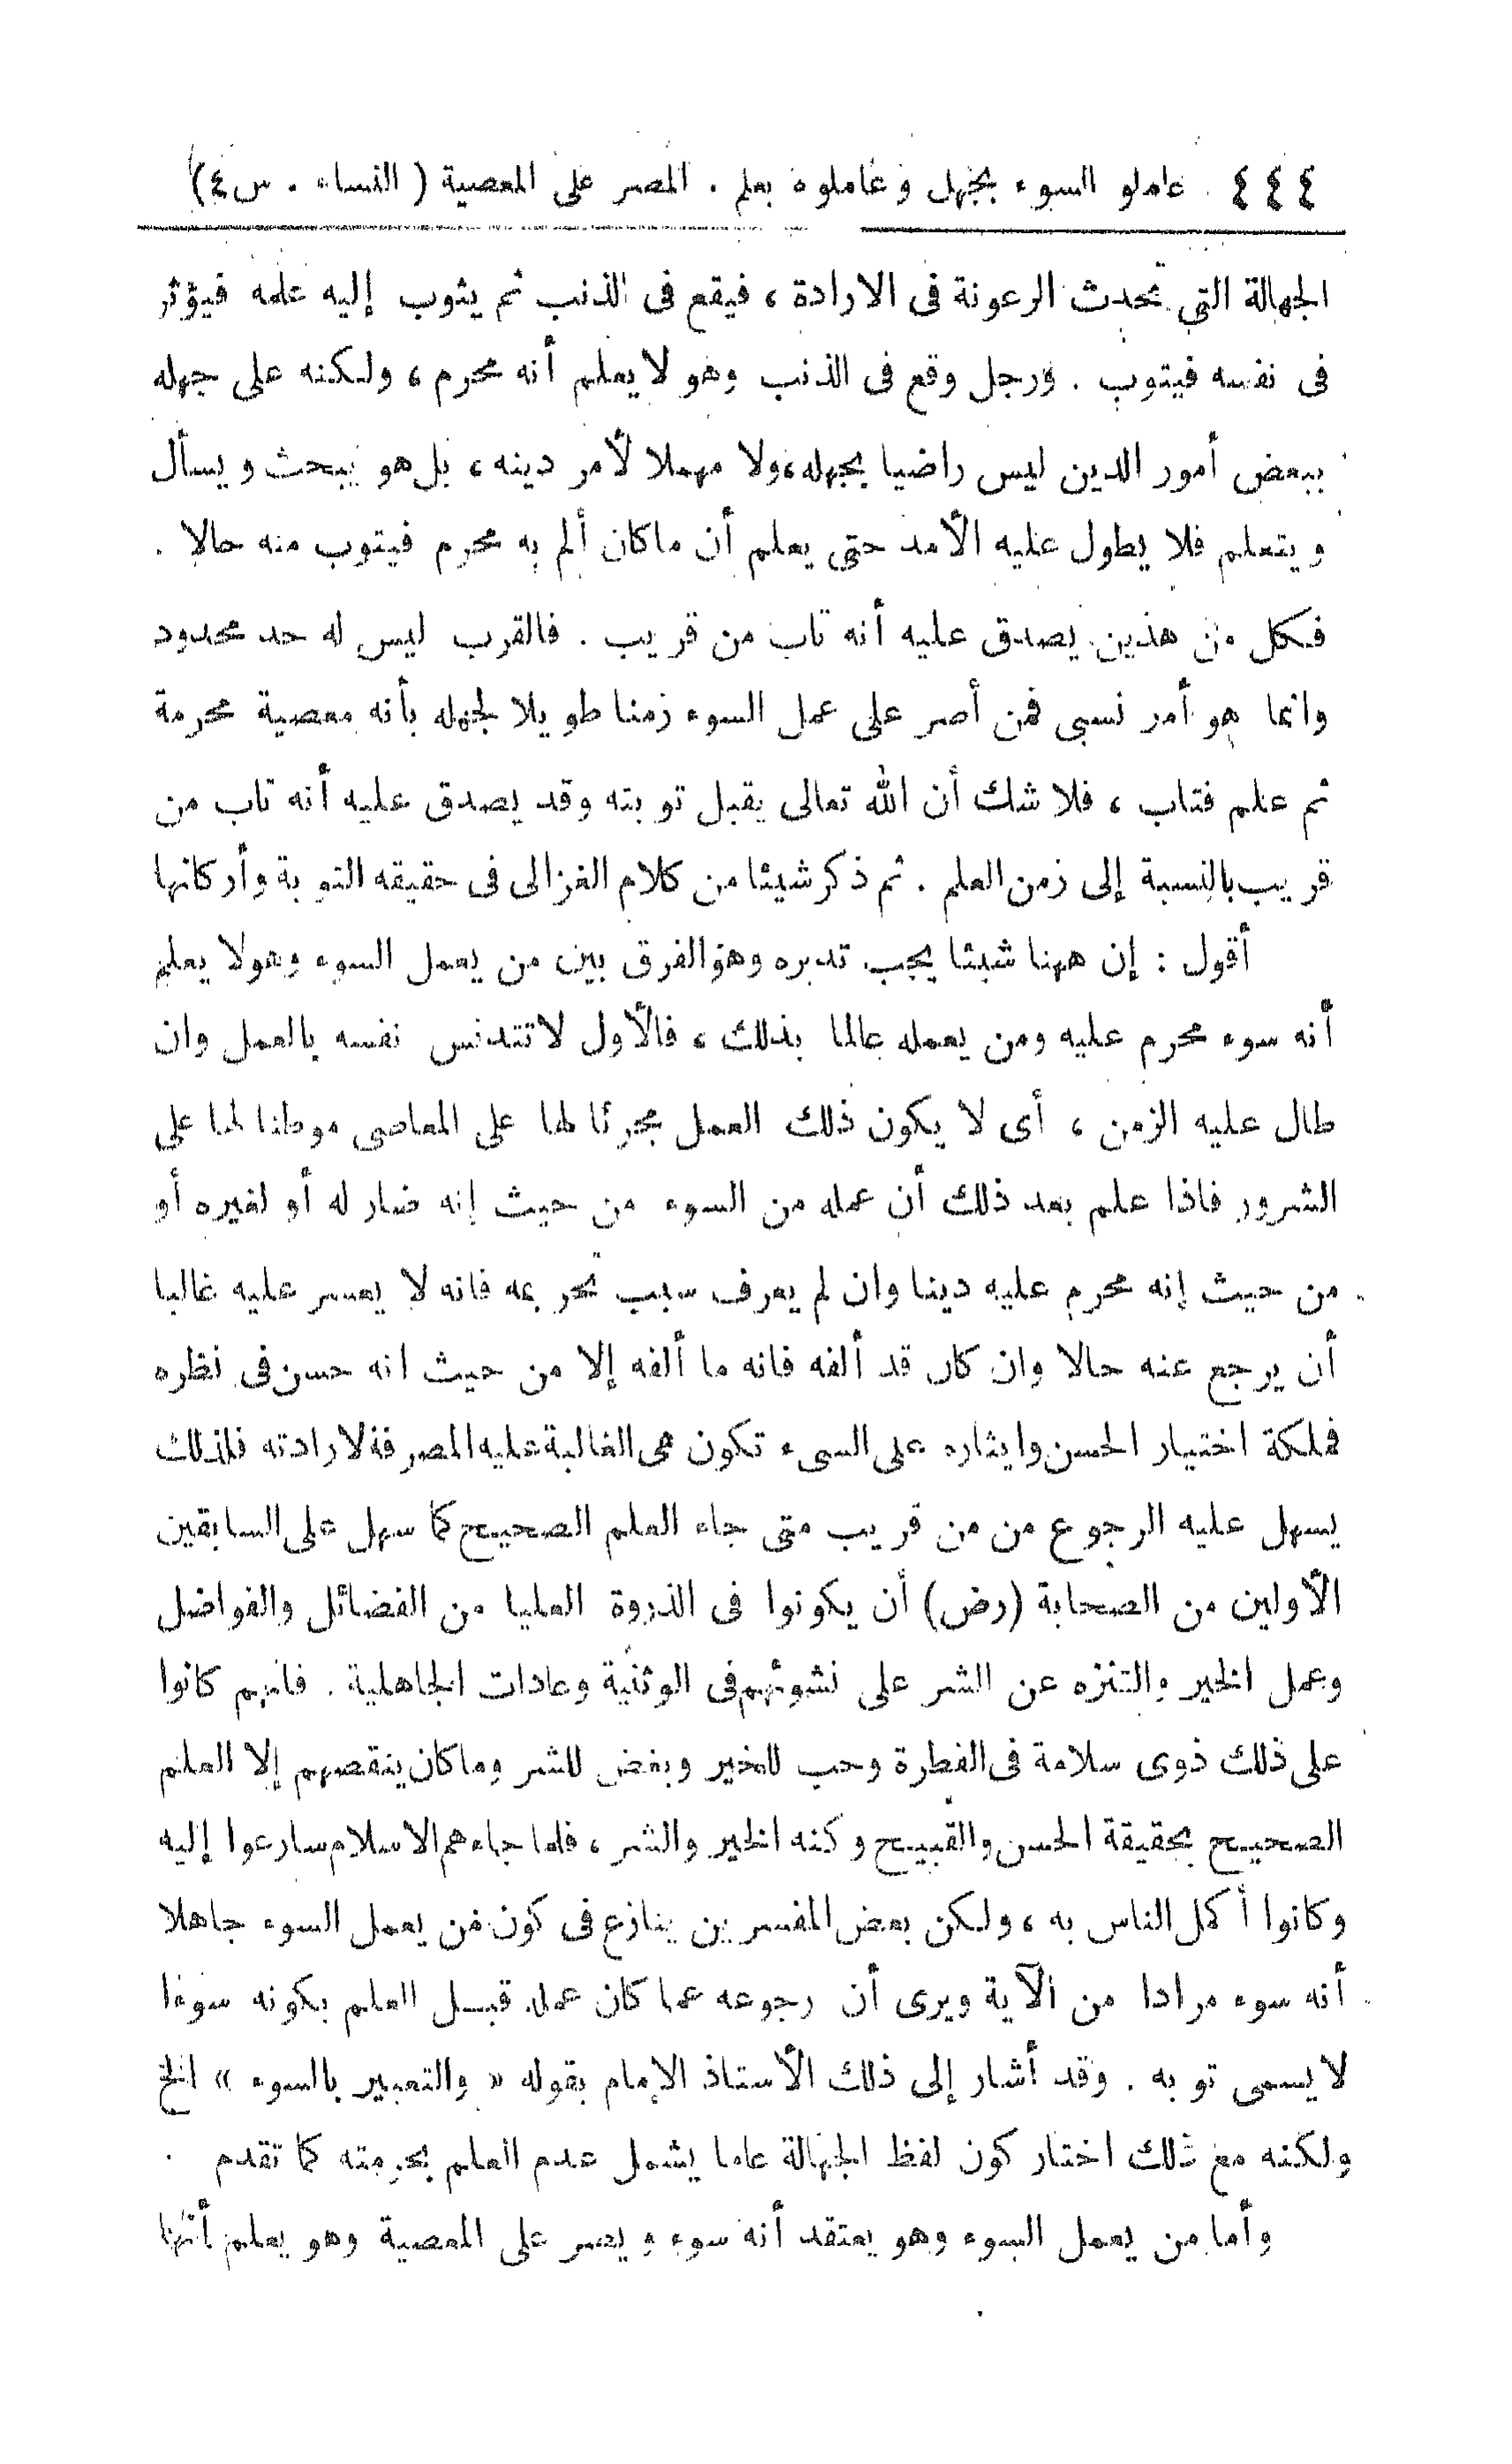 ٤٤٤ عاملو السوء بجهل وعاملوه بعلم . المصر على المعصية ( النساء . س ٤)
الجهالة التي تحدث الرعونة فى الارادة ، فيقع فى الذنب ثم يثوب إليه علمه فيؤثر
فى نفسه فيتوب . ورجل وقع فى الذنب وهو لا يعلم أنه محرم ، ولكنه على جهله
ببعض أمور الدين ليس راضيا بجهله ، ولا مهملا لأمر دينه ، بل هو يبحث ويسأل
ويتعلم فلا يطول عليه الأمد حتى يعلم أن ما كان ألم به محرم فيتوب منه حالا .
فكل من هذين يصدق عليه أنه تاب من قريب . فالقرب ليس له حد محدود
وانما هو أمر نسبى فمن أصر على عمل السوء زمنا طويلا لجهله بأنه معصية محرمة
ثم علم فتاب ، فلا شك أن الله تعالى يقبل توبته وقد يصدق عليه أنه تاب من
قريب بالنسبة إلى زمن العلم . ثم ذكر شيئا من كلام الغزالى فى حقيقه التوبة وأركانها
أقول : إن ههنا شيئا يجب تدبره وهو الفرق بين من يعمل السوء وهو لا يعلم
أنه سوء محرم عليه ومن يعمله عالما بذلك ، فالأول لا تتدنس نفسه بالعمل وان
طال عليه الزمن ، أى لا يكون ذلك العمل مجرئا لها على المعاصى موطنا لها على
الشرور فاذا علم بعد ذلك أن عمله من السوء من حيث إنه ضار له أو لغيره أو
من حيث إنه محرم عليه دينا وان لم يعرف سبب تحريمه فانه لا يعسر عليه غالبا
أن يرجع عنه حالا وان كان قد ألفه فانه ما ألفه إلا من حيث انه حسن فى نظره
فملكة اختيار الحسن وايثاره على السىء تكون هى الغالبة عليه المصرفة لارادته فلذلك
يسهل عليه الرجوع من من قريب متى جاء العلم الصحيح كما سهل على السابقين
الأولين من الصحابة (رض) أن يكونوا فى الذروة العليا من الفضائل والفواضل
وعمل الخير والتنزه عن الشر على نشوئهم فى الوثنية وعادات الجاهلية . فانهم كانوا
على ذلك ذوى سلامة فى الفطرة وحب للخير وبغض للشر وما كان ينقصهم إلا العلم
الصحيح بحقيقة الحسن والقبيح وكنه الخير والشر ، فلما جاءهم الاسلام سارعوا إليه
وكانوا أكمل الناس به ، ولكن بعض المفسرين ينازع فى كون من يعمل السوء جاهلا
أنه سوء مرادا من الآية ويرى أن رجوعه عما كان عمله قبل العلم بكونه سوءا
لا يسمى توبه . وقد أشار إلى ذلك الأستاذ الإمام بقوله « والتعبير بالسوء » الخ
ولكنه مع ذلك اختار كون لفظ الجهالة عاما يشمل عدم العلم بحرمته كما تقدم .
وأما من يعمل السوء وهو يعتقد أنه سوء ويصر على المعصية وهو يعلم أنها